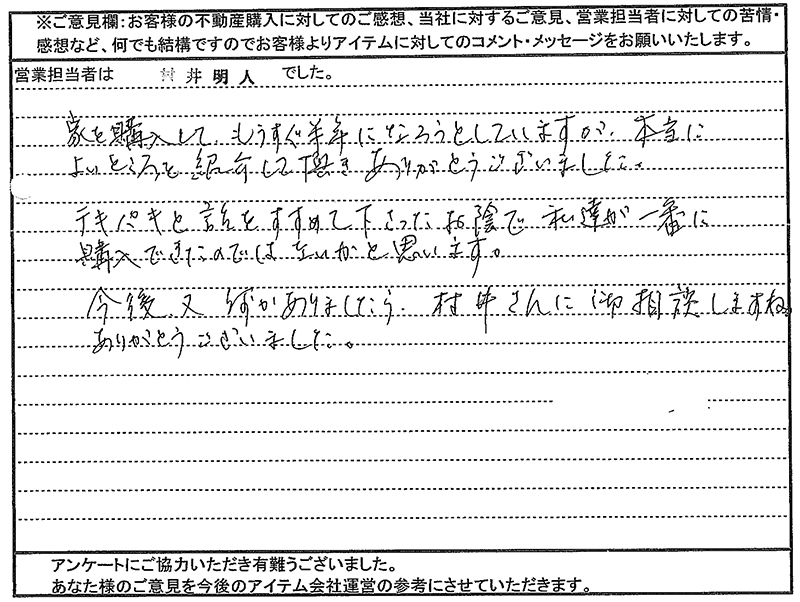 ※ご意見欄:お客様の不動産購入に対してのご感想、当社に対するご意見、営業担当者に対しての苦情・
感想など、何でも結構ですのでお客様よりアイテムに対してのコメント・メッセージをお願いいたします。
営業担当者は 村井明人 でした。
家を購入して、もうすぐ半年になろうとしていますが、本当に
よいところを紹介して頂きありがとうございました。
テキパキと話をすすめて下さったお陰で私達が一番に
購入できたのではないかと思います。
今後又何かありましたら、村井さんに御相談しますね。
ありがとうございました。
アンケートにご協力いただき有難うございました。
あなた様のご意見を今後のアイテム会社運営の参考にさせていただきます。